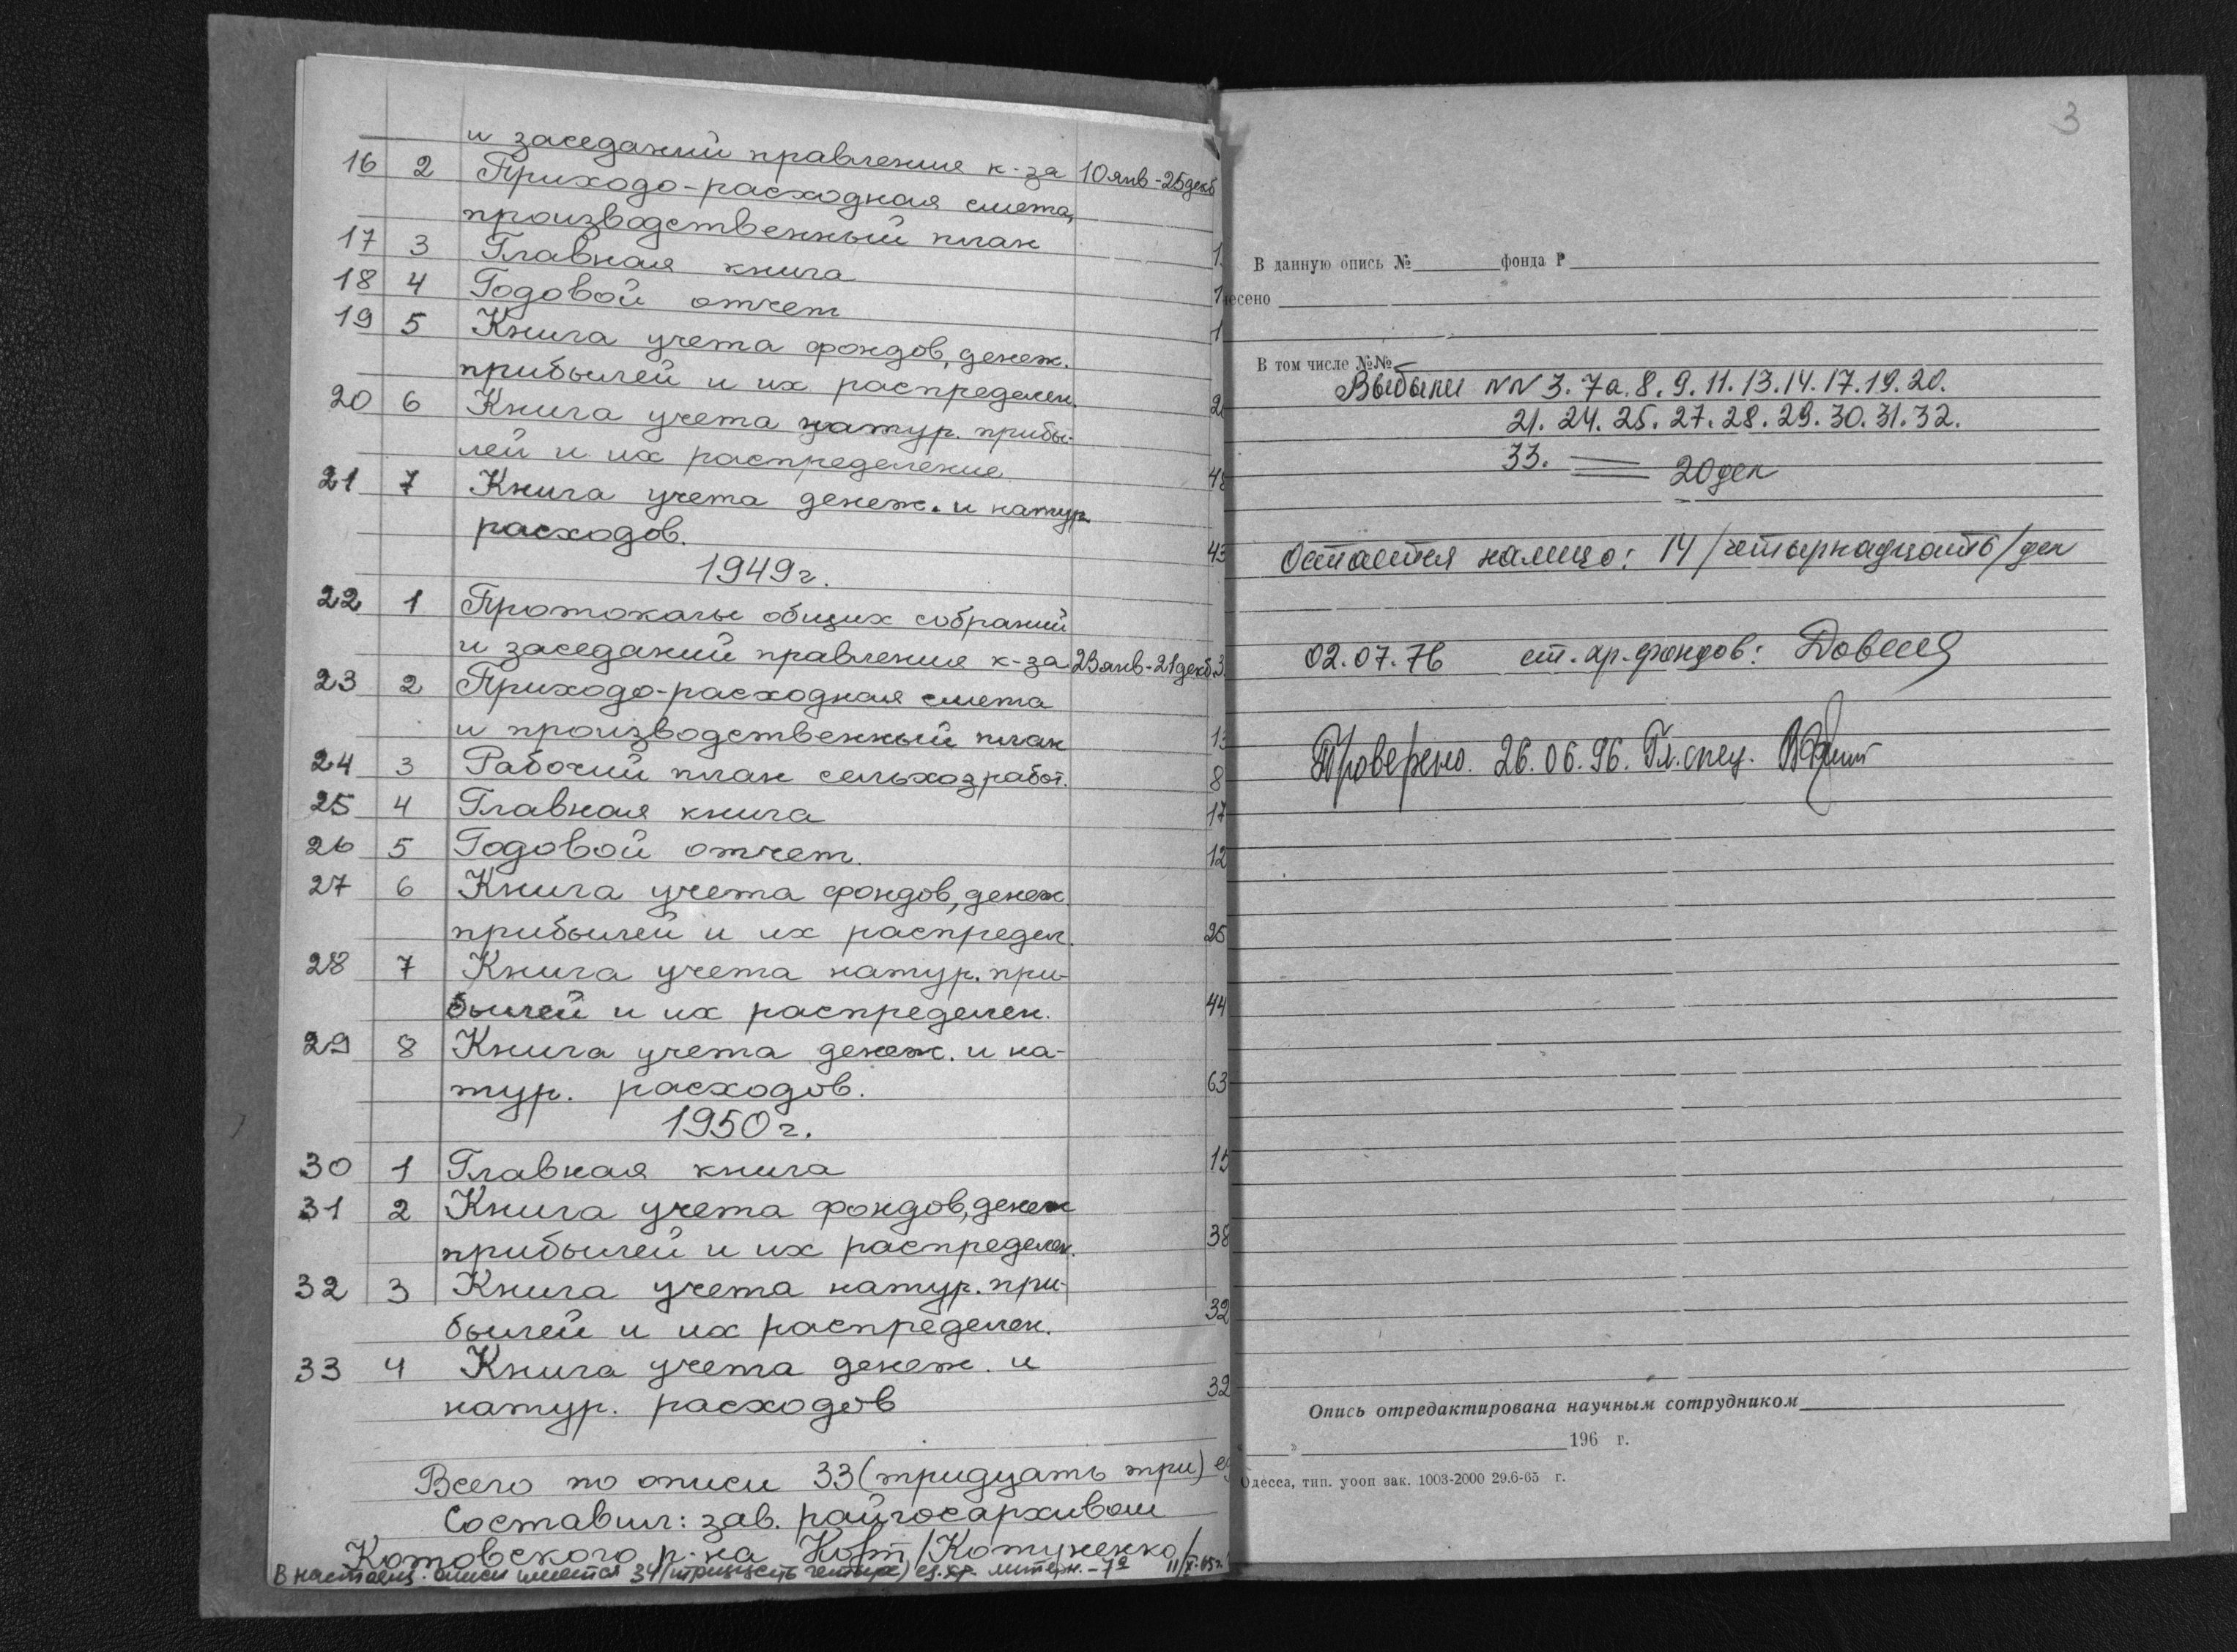 и заседаний правления к-за 10 янв - 25 декб
16 2 Приходо-расходная смета,
производственный план 1
17 3 Главная книга 1
18 4 Годовой отчет 1
19 5 Книга учета фондов, денеж.
прибылей и их распределен. 2
20 6 Книга учета натур. прибы-
лей и их распределение 48
21 7 Книга учета денеж. и натур.
расходов. 43
1949 г.
22 1 Протоколы общих собраний
и заседаний правления к-за 23 янв - 21 декб. 3
23 2 Приходо-расходная смета
и производственный план 13
24 3 Рабочий план сельхозработ. 8
25 4 Главная книга 17
26 5 Годовой отчет. 12
27 6 Книга учета фондов, денеж
прибылей и их распредел. 25
28 7 Книга учета натур. при-
былей и их распределен. 44
29 8 Книга учета денеж. и на-
тур. расходов. 63
1950 г.
30 1 Главная книга 15
31 2 Книга учета фондов, денеж
прибылей и их распределен. 38
32 3 Книга учета натур. при-
былей и их распределен. 32
33 4 Книга учета денеж. и
натур. расходов 32
Всего по описи 33 (тридцать три) ед
Составил: зав. райгосархивом
Котовского р-на /Котуненко/
В настоящ. описи имеется 34 (тридцать четыре) ед. хр. литерн. - 7а 11/X-65 г.
3
В данную опись № фонда Р
несено
В том числе №№
Выбыли NN 3. 7а. 8. 9. 11. 13. 14. 17. 19. 20.
21. 24. 25. 27. 28. 29. 30. 31. 32.
33. = 20 дел
Остается налицо: 14 /четырнадцать/ дел
02.07.76 ст. хр. фондов:
Проверено. 26.06.96. Гл. спец.
Опись отредактирована научным сотрудником
« » 196 г.
Одесса, тип. уооп зак. 1003-2000 29.6-65 г.